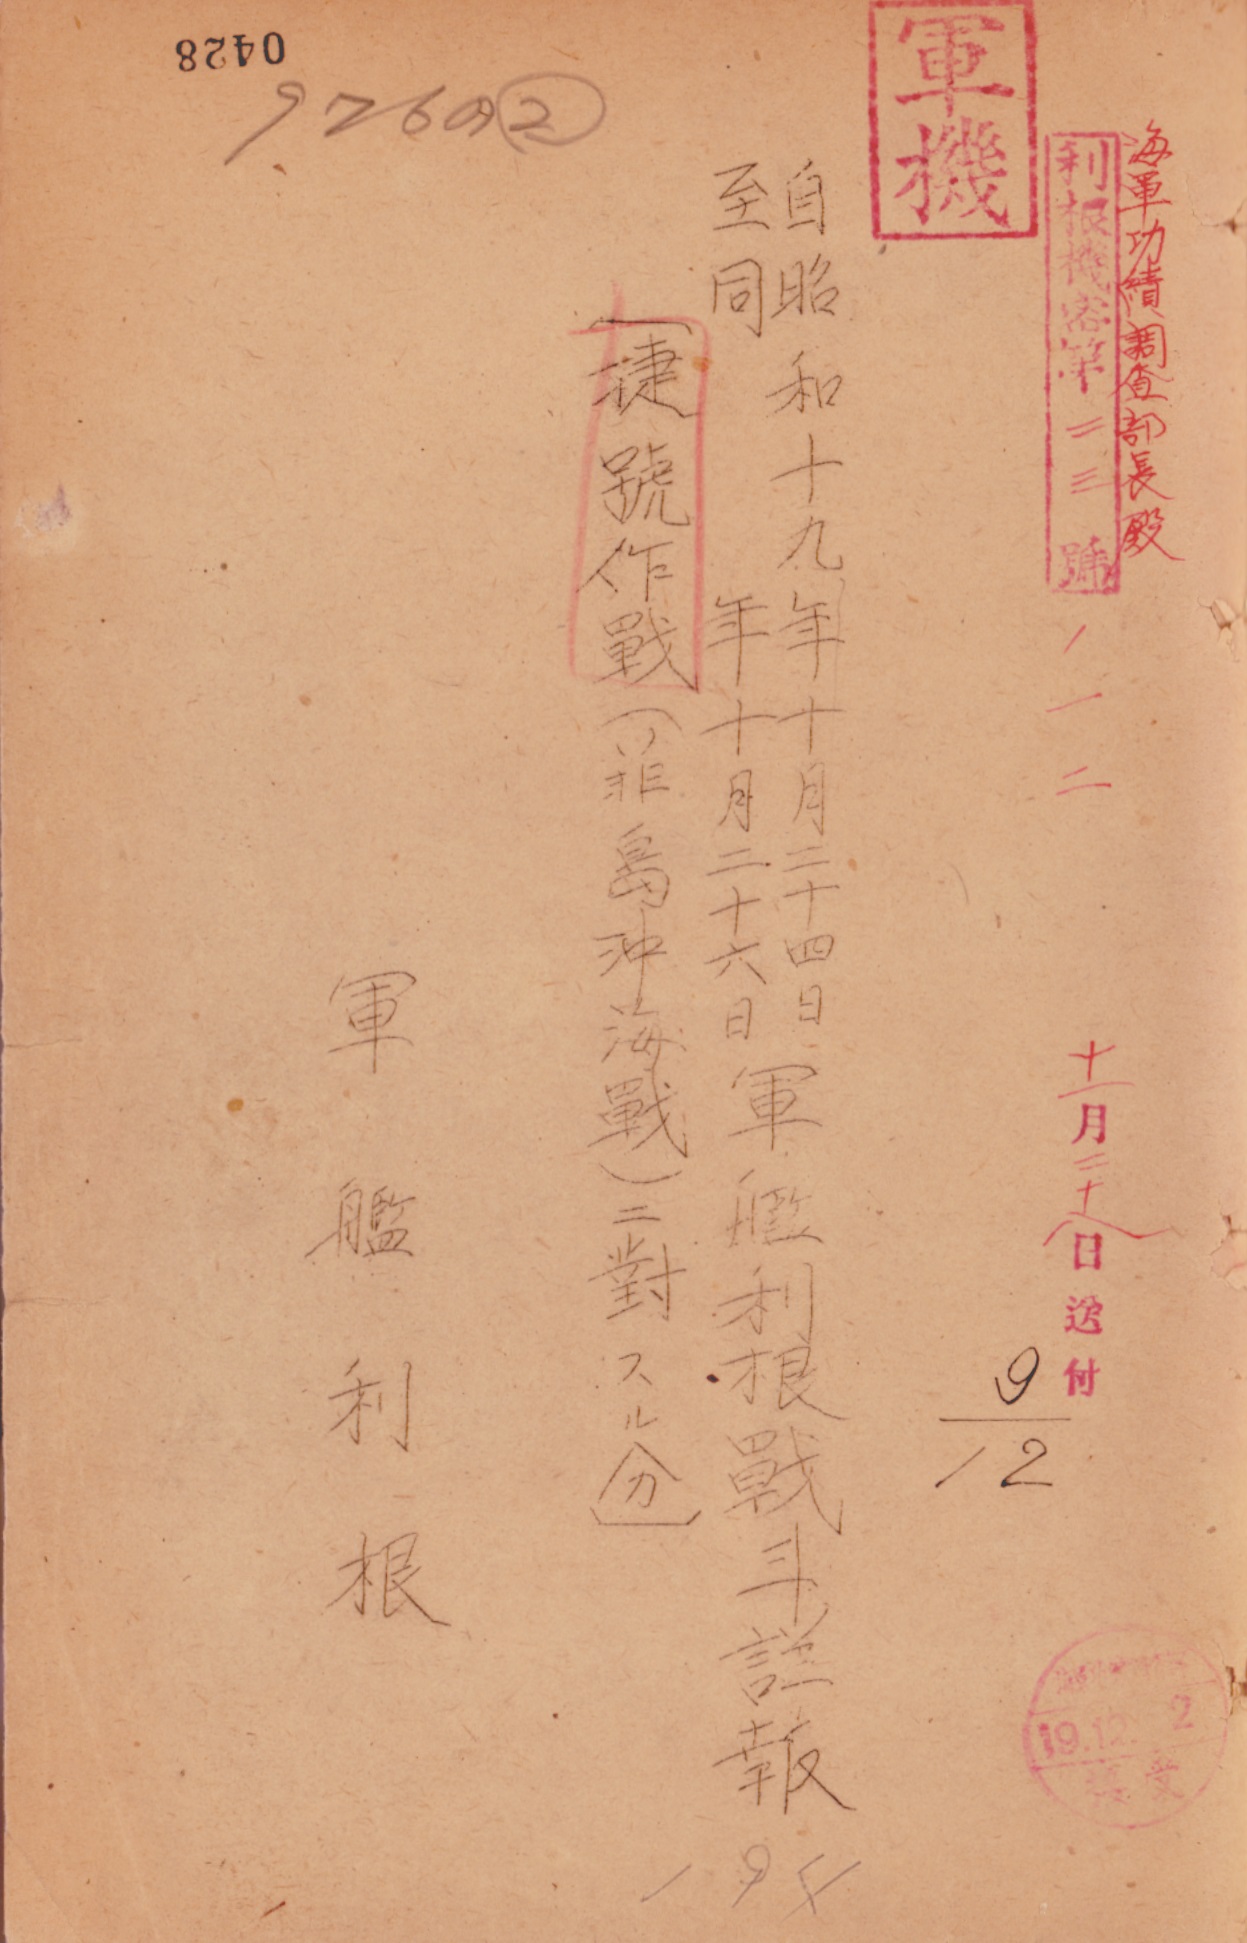 海軍功績調査部長殿
利根機密第二三號ノ一二
十一月二十八日送付
9/12
軍機
自昭和十九年十月二十四日
至同年十月二十六日
軍艦利根戰斗詳報
〔捷號作戰(菲島沖海戰)ニ對スル分〕
軍艦利根
0428
976の②
19.12.2